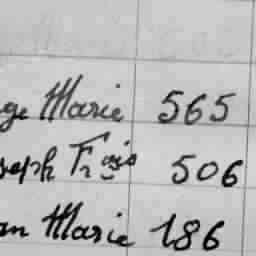 ge Marie 565
seph Frçois 506
an Marie 186